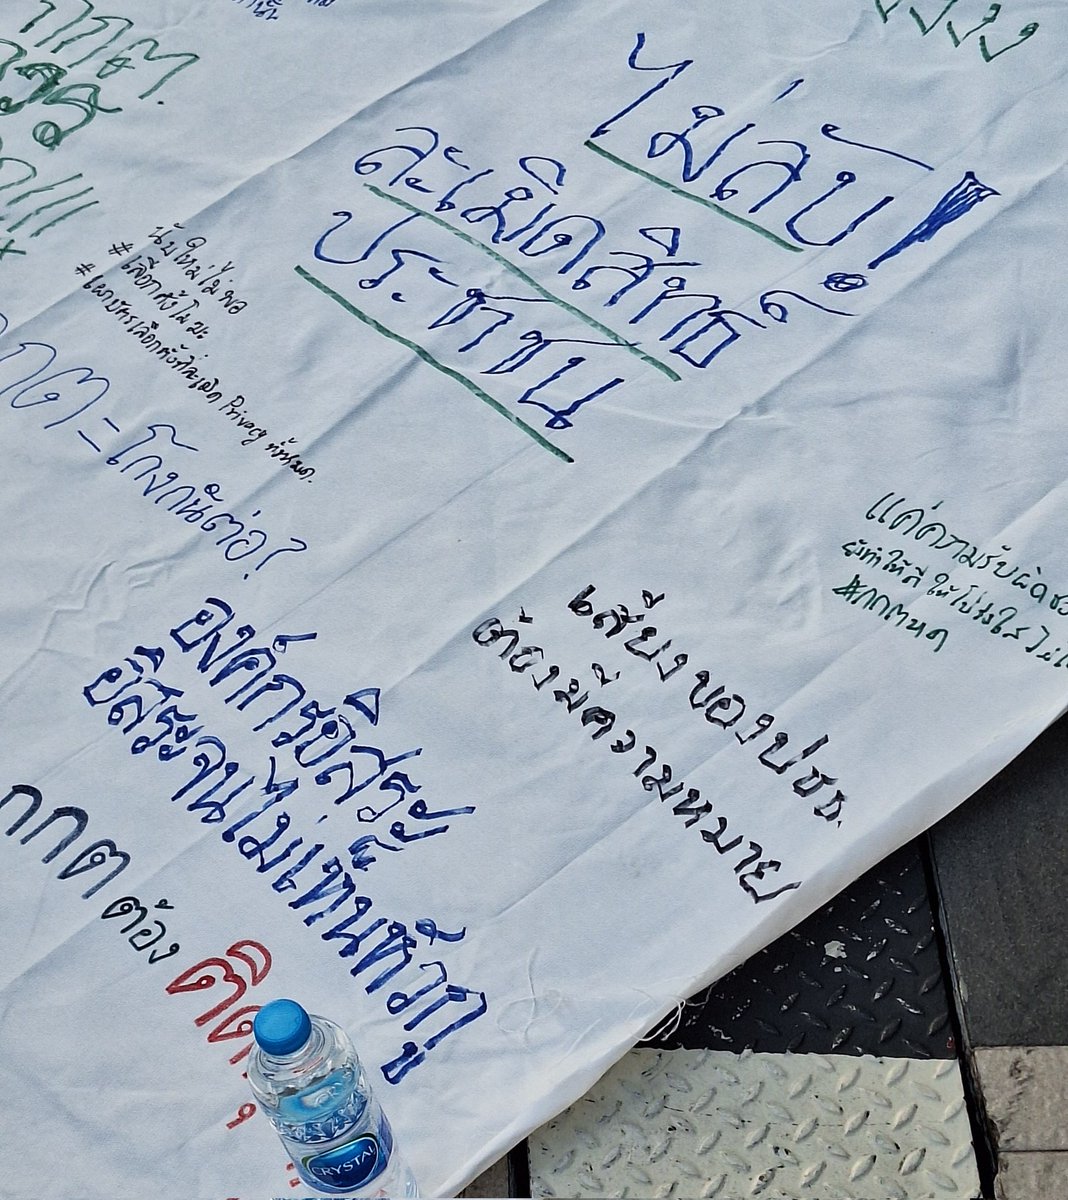 ไม่ลับ!
ละเมิดสิทธิ์
ประชาชน
นับใหม่ไม่พอ
#เลือกตั้งโมฆะ
#เผาบัตรเลือกตั้งที่ละเมิด Privacy ทั้งหมด.
กกต = โกงกันต่อ?
แค่ความรับผิดชอ
ยังทำให้ดี ให้โปร่งใส ไม่
#กกตหด
เสียงของปชช.
ต้องมีความหมาย
องค์กรอิสระ
อิสระจนไม่เห็นหัวกู
กกต ต้อง ติด
CRYSTAL